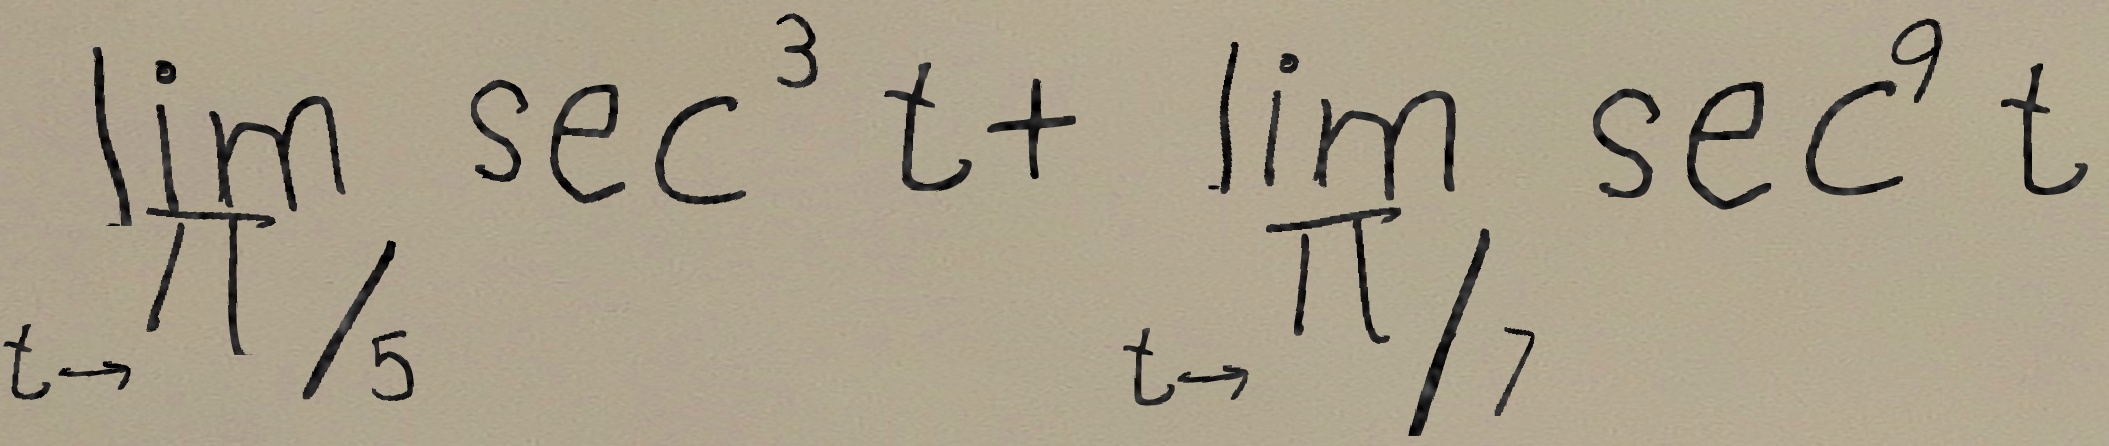 \lim_{t \to \pi/5} \sec^3 t + \lim_{t \to \pi/7} \sec^9 t